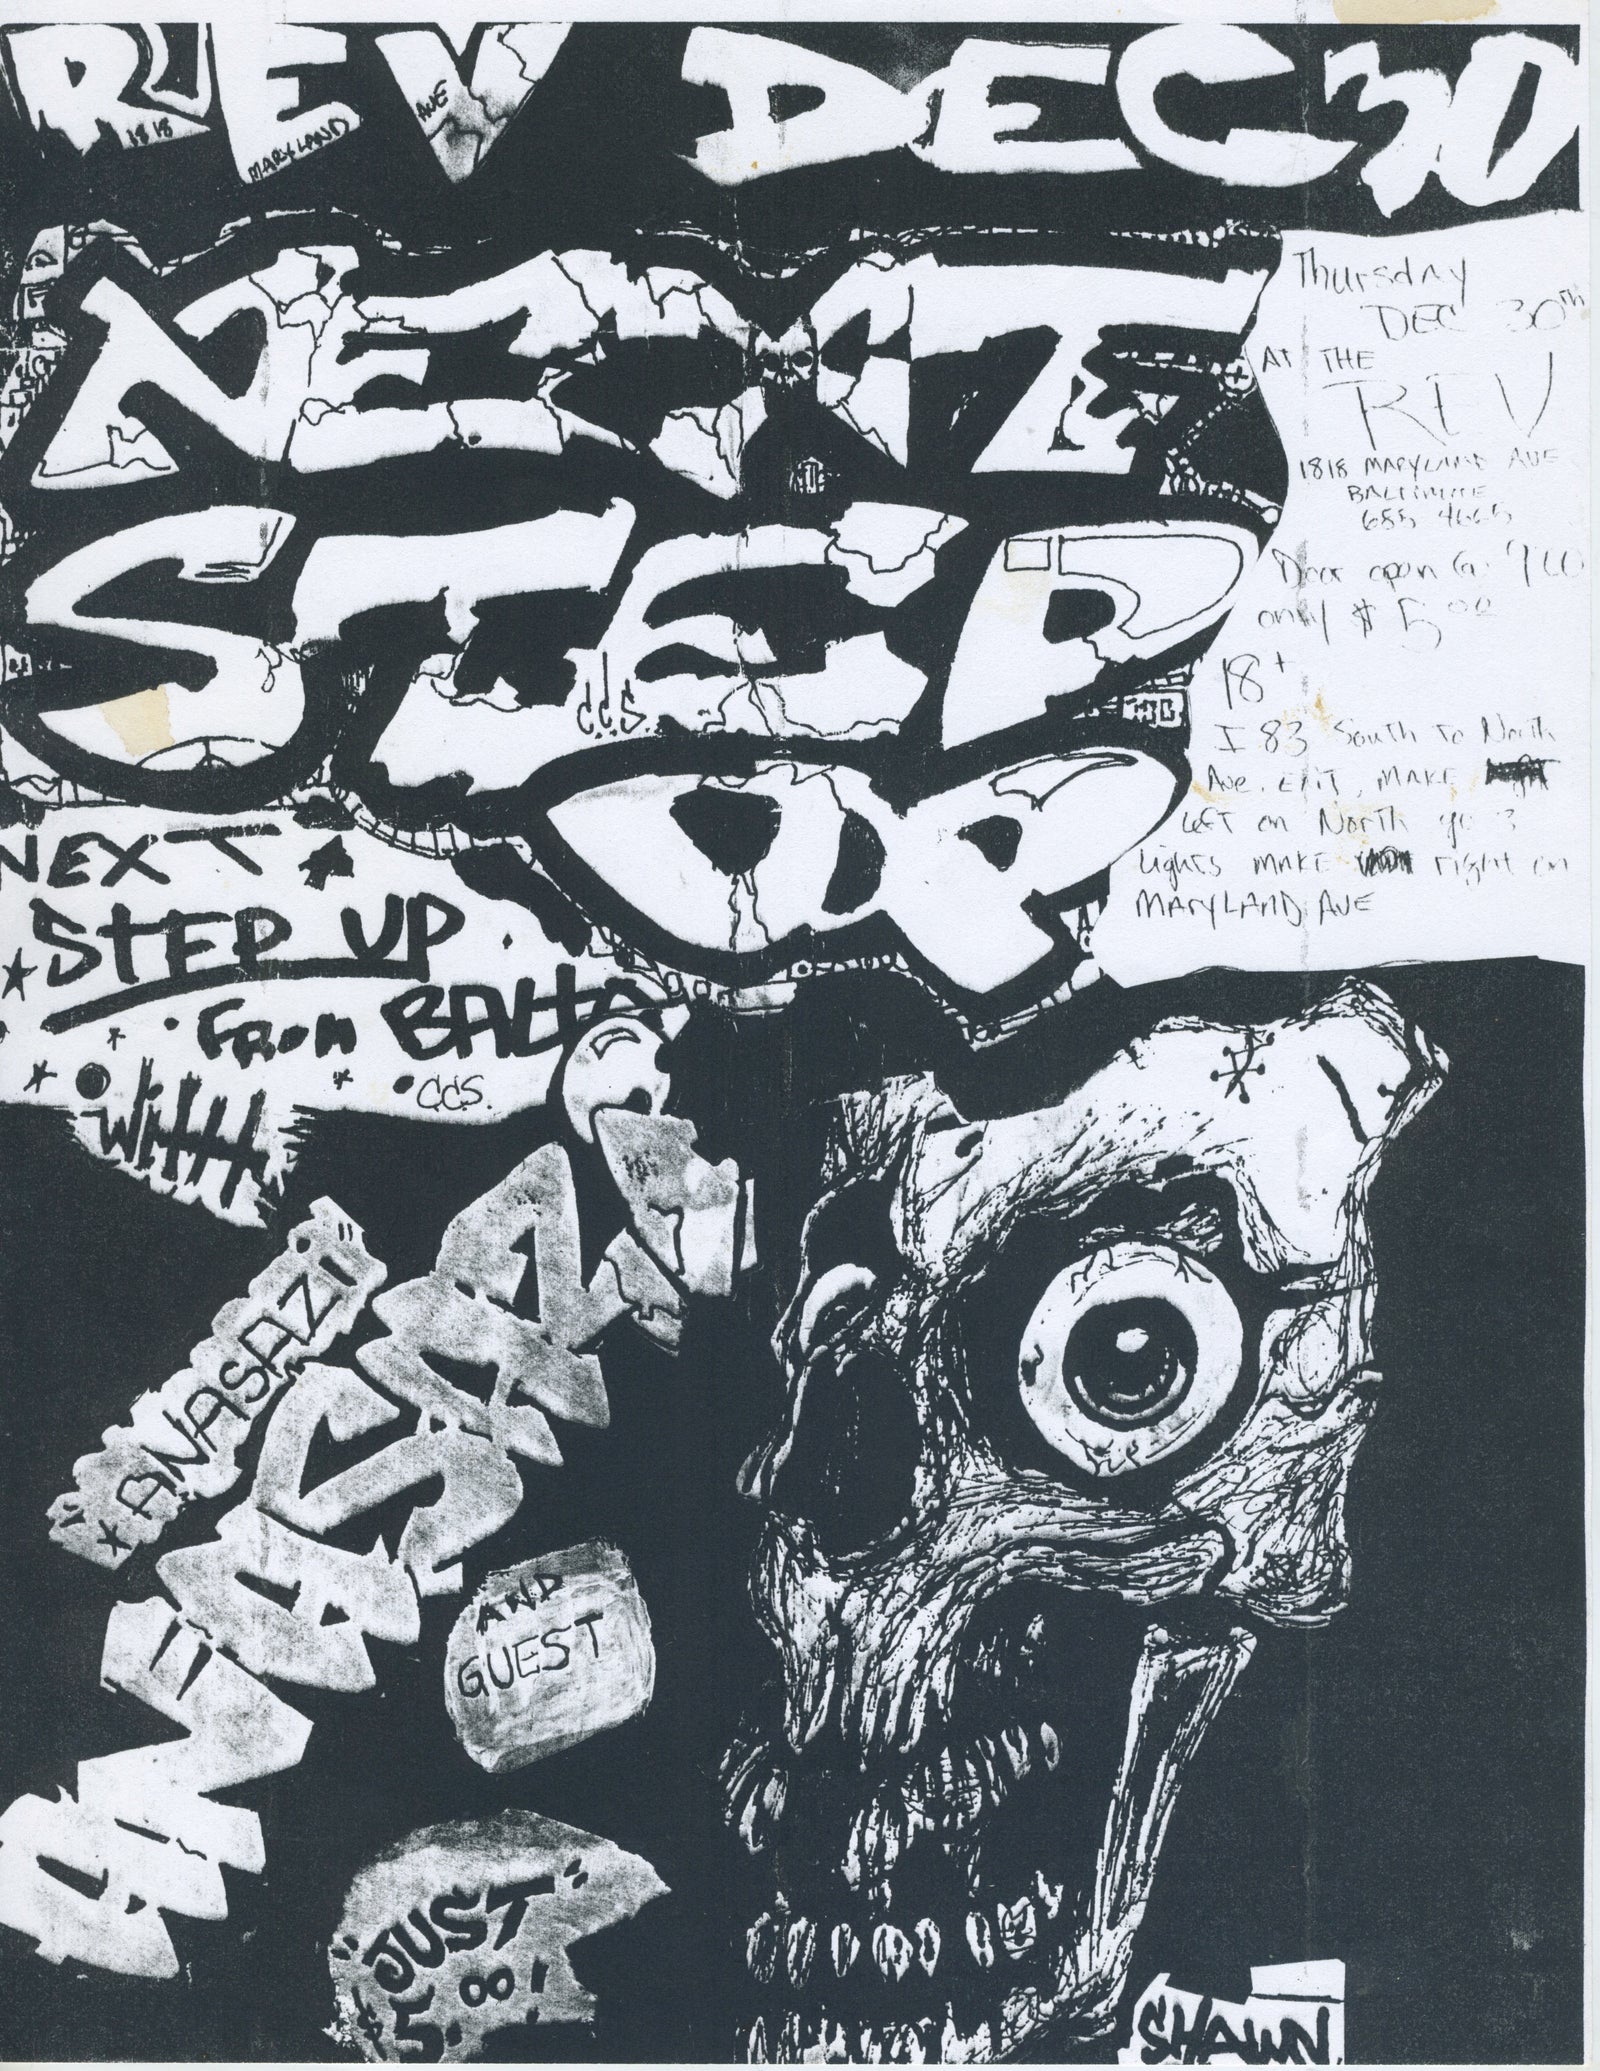 REV DEC 30
1818 MARYLAND AVE
NEXT
STEP
UP
C.C.S.
Thursday
DEC 30th
AT THE
REV
1818 MARYLAND AVE
BALTIMORE
685 4665
Door open @
only $ 5 00
18+
I 83 South to North
Ave. Exit, MAKE
Left on North go 3
Lights MAKE right on
MARYLAND AVE
NEXT
STEP UP
From BALTO
C.C.S.
With
"ANASAZI"
ANASAZI
AND
GUEST
"JUST"
$5.00!
SHAWN